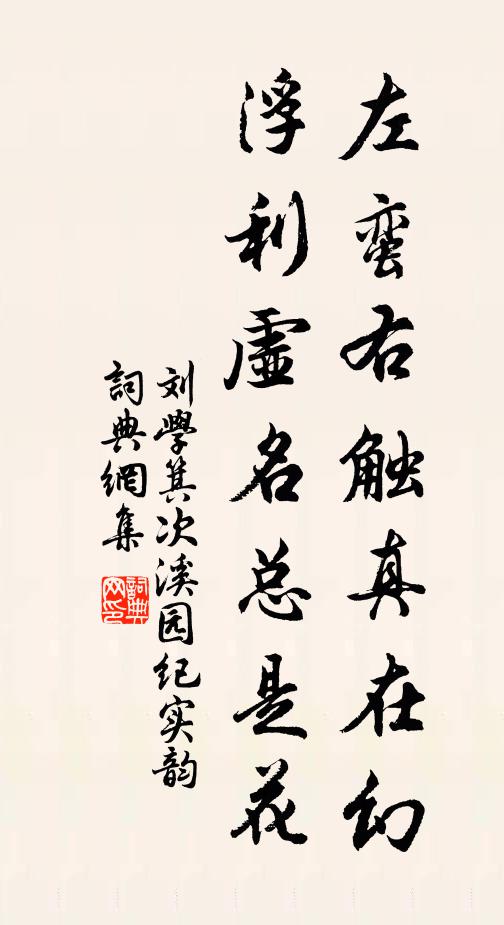 左蛮右触真在幻
浮利虚名总是花
刘學箕次溪园纪实韵
詞典網集
詞典
网印